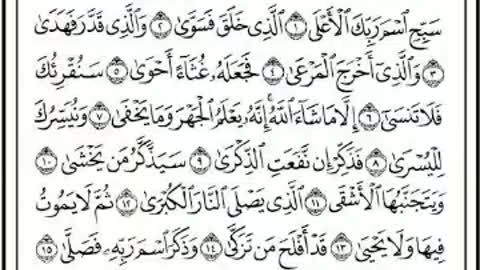 سَبِّحِ ٱسْمَ رَبِّكَ ٱلْأَعْلَى ١ ٱلَّذِى خَلَقَ فَسَوَّىٰ ٢ وَٱلَّذِى قَدَّرَ فَهَدَىٰ
٣ وَٱلَّذِىٓ أَخْرَجَ ٱلْمَرْعَىٰ ٤ فَجَعَلَهُۥ غُثَآءً أَحْوَىٰ ٥ سَنُقْرِئُكَ
فَلَا تَنسَىٰٓ ٦ إِلَّا مَا شَآءَ ٱللَّهُ ۚ إِنَّهُۥ يَعْلَمُ ٱلْجَهْرَ وَمَا يَخْفَىٰ ٧ وَنُيَسِّرُكَ
لِلْيُسْرَىٰ ٨ فَذَكِّرْ إِن نَّفَعَتِ ٱلذِّكْرَىٰ ٩ سَيَذَّكَّرُ مَن يَخْشَىٰ ١٠
وَيَتَجَنَّبُهَا ٱلْأَشْقَى ١١ ٱلَّذِى يَصْلَى ٱلنَّارَ ٱلْكُبْرَىٰ ١٢ ثُمَّ لَا يَمُوتُ
فِيهَا وَلَا يَحْيَىٰ ١٣ قَدْ أَفْلَحَ مَن تَزَكَّىٰ ١٤ وَذَكَرَ ٱسْمَ رَبِّهِۦ فَصَلَّىٰ ١٥